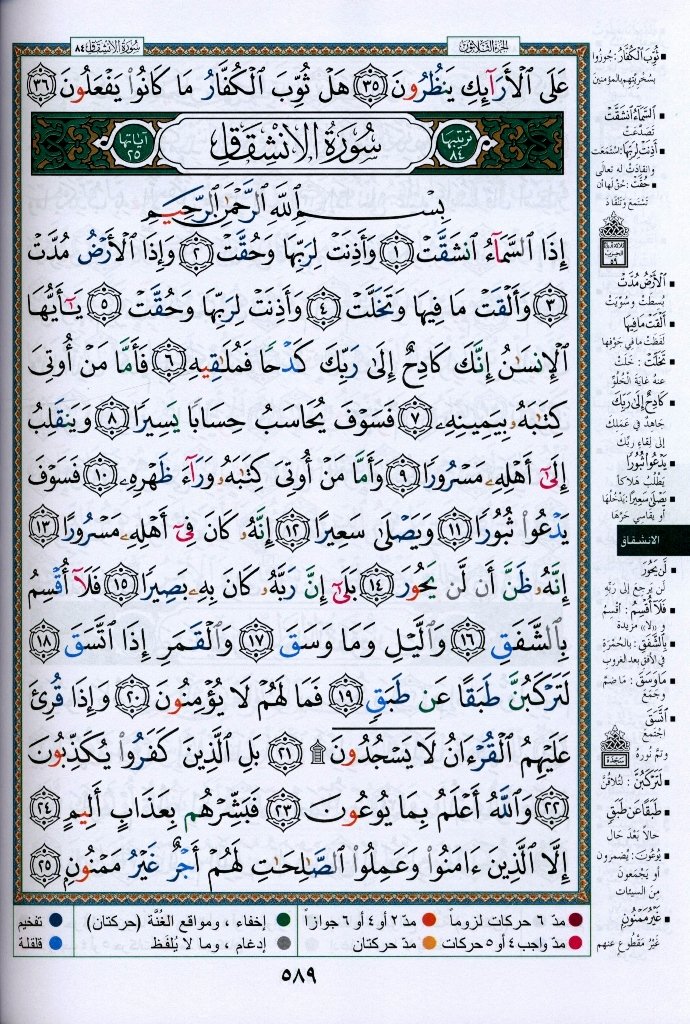 سُورَةُ الانشِقَاق ٨٤
الجزء الثلاثون
عَلَى ٱلۡأَرَآئِكِ يَنظُرُونَ ٣٥ هَلۡ ثُوِّبَ ٱلۡكُفَّارُ مَا كَانُواْ يَفۡعَلُونَ ٣٦
ترتيبها ٨٤
سُورَةُ الانشِقَاقِ
آياتها ٢٥
بِسۡمِ ٱللَّهِ ٱلرَّحۡمَٰنِ ٱلرَّحِيمِ
إِذَا ٱلسَّمَآءُ ٱنشَقَّتۡ ١ وَأَذِنَتۡ لِرَبِّهَا وَحُقَّتۡ ٢ وَإِذَا ٱلۡأَرۡضُ مُدَّتۡ
٣ وَأَلۡقَتۡ مَا فِيهَا وَتَخَلَّتۡ ٤ وَأَذِنَتۡ لِرَبِّهَا وَحُقَّتۡ ٥ يَٰٓأَيُّهَا
ٱلۡإِنسَٰنُ إِنَّكَ كَادِحٌ إِلَىٰ رَبِّكَ كَدۡحٗا فَمُلَٰقِيهِ ٦ فَأَمَّا مَنۡ أُوتِيَ
كِتَٰبَهُۥ بِيَمِينِهِۦ ٧ فَسَوۡفَ يُحَاسَبُ حِسَابٗا يَسِيرٗا ٨ وَيَنقَلِبُ
إِلَىٰٓ أَهۡلِهِۦ مَسۡرُورٗا ٩ وَأَمَّا مَنۡ أُوتِيَ كِتَٰبَهُۥ وَرَآءَ ظَهۡرِهِۦ ١٠ فَسَوۡفَ
يَدۡعُواْ ثُبُورٗا ١١ وَيَصۡلَىٰ سَعِيرًا ١٢ إِنَّهُۥ كَانَ فِيٓ أَهۡلِهِۦ مَسۡرُورًا ١٣
إِنَّهُۥ ظَنَّ أَن لَّن يَحُورَ ١٤ بَلَىٰٓ إِنَّ رَبَّهُۥ كَانَ بِهِۦ بَصِيرٗا ١٥ فَلَآ أُقۡسِمُ
بِٱلشَّفَقِ ١٦ وَٱلَّيۡلِ وَمَا وَسَقَ ١٧ وَٱلۡقَمَرِ إِذَا ٱتَّسَقَ ١٨
لَتَرۡكَبُنَّ طَبَقًا عَن طَبَقٖ ١٩ فَمَا لَهُمۡ لَا يُؤۡمِنُونَ ٢٠ وَإِذَا قُرِئَ
عَلَيۡهِمُ ٱلۡقُرۡءَانُ لَا يَسۡجُدُونَۤ ۩ ٢١ بَلِ ٱلَّذِينَ كَفَرُواْ يُكَذِّبُونَ
٢٢ وَٱللَّهُ أَعۡلَمُ بِمَا يُوعُونَ ٢٣ فَبَشِّرۡهُم بِعَذَابٍ أَلِيمٍ ٢٤
إِلَّا ٱلَّذِينَ ءَامَنُواْ وَعَمِلُواْ ٱلصَّٰلِحَٰتِ لَهُمۡ أَجۡرٌ غَيۡرُ مَمۡنُونِۭ ٢٥
ثُوِّبَ الكُفَّارُ: جُوزُوا
بسُخْريَّتِهم بالمؤمنين
السَّمَاءُ انشَقَّتْ
تَصَدَّعَتْ
أَذِنَتْ لِرَبِّهَا: اسْتَمَعَت
وانقادَتْ له تعالى
حُقَّتْ: حُقَّ لها أن
تَسْتَمِعَ وتَنْقَادَ
الأَرْضُ مُدَّتْ
بُسِطَتْ وسُوِّيَتْ
أَلْقَتْ مَا فِيهَا
لَفَظَتْ ما في جَوْفِها
تَخَلَّتْ: خَلَتْ
عنه غايَةَ الخُلُوِّ
كَادِحٌ إِلَى رَبِّكَ
جَاهِدٌ في عَمَلِكَ
إلى لقاءِ ربِّك
يَدْعُوا ثُبُورًا
يَطْلُبُ هَلاكاً
يَصْلَى سَعِيرًا: يَدْخُلُها
أو يقاسي حَرَّها
الانشقاق
لَن يَحُورَ
لَن يَرْجِعَ إلى رَبِّهِ
فَلَا أُقْسِمُ: أُقْسِمُ
و «لا» مزيدة
بِالشَّفَقِ: بالحُمْرَةِ
في الأُفقِ بعد الغروب
مَا وَسَقَ: ما ضمّ
وجَمَعَ
اتَّسَقَ
اجْتَمَعَ
وتَمَّ نورُهُ
سجدة
لَتَرْكَبُنَّ: لَتُلاقُنَّ
طَبَقًا عَن طَبَقٍ
حالاً بَعْدَ حَالٍ
يُوعُونَ: يُضْمِرون
أو يَجْمَعون
مِنَ السيئات
غَيْرُ مَمْنُونٍ
غَيْرُ مَقْطُوعٍ عنهم
مدّ ٦ حركات لزوماً
مدّ ٢ أو ٤ أو ٦ جوازاً
إخفاء، ومواقع الغُنَّة (حركتان)
تفخيم
مدّ واجب ٤ أو ٥ حركات
مدّ حركتان
إدغام، وما لا يُلفَظ
قلقلة
٥٨٩